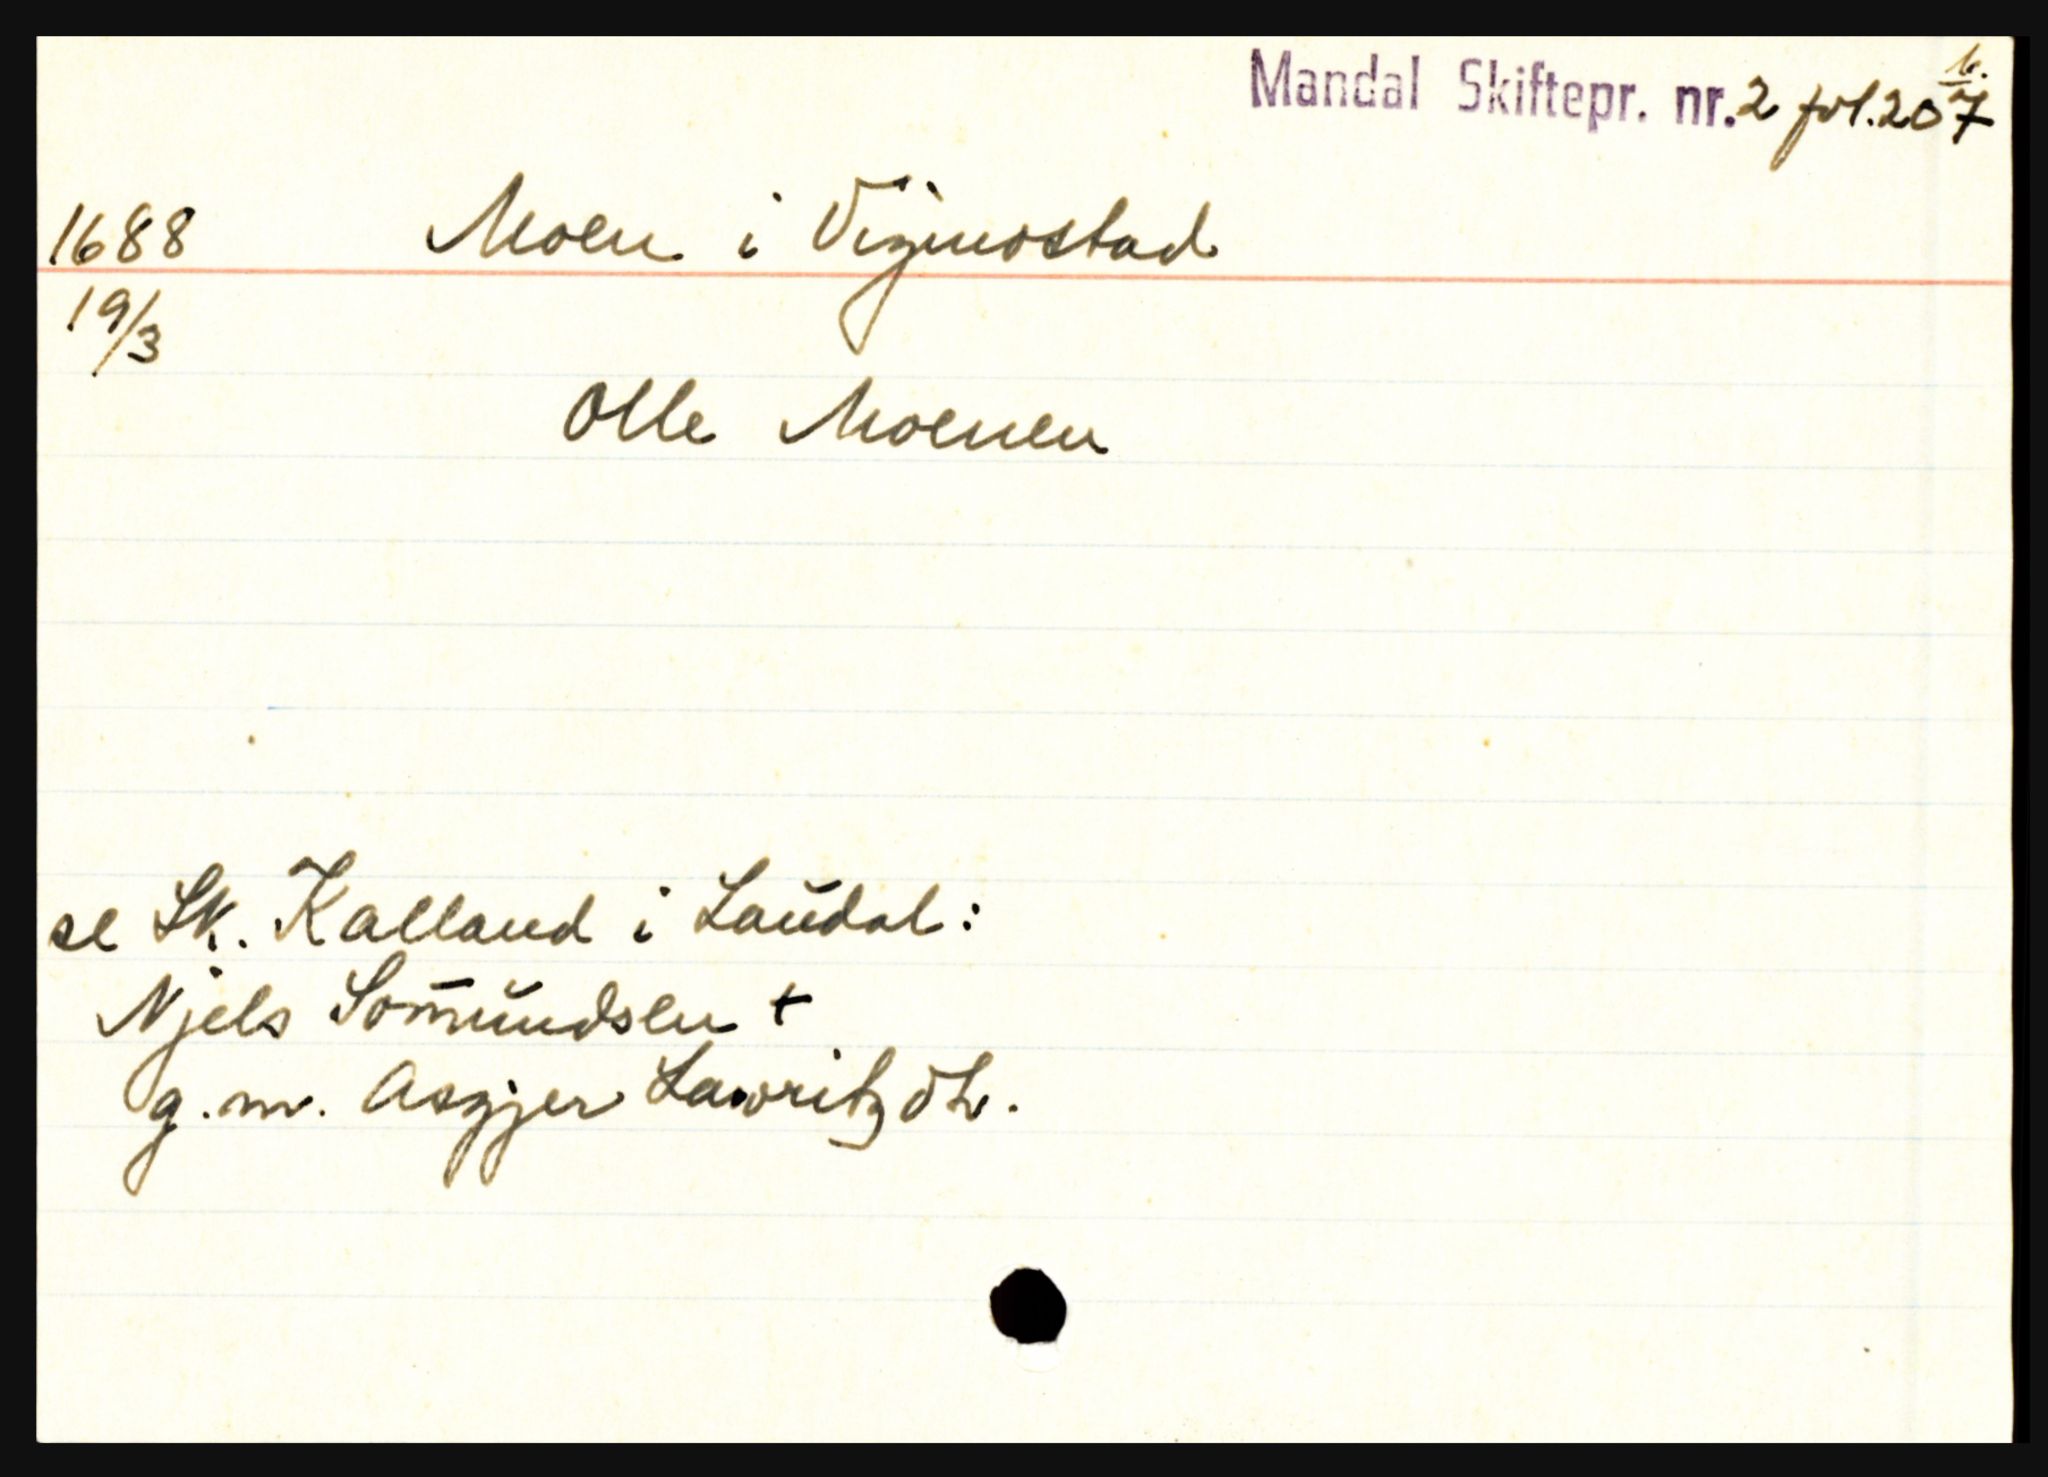 Mandal Skiftepr. nr. 2 fol. 207 b.
1688 Moen i Vigmostad
19/3
Olle Moenen
se Sk. Kalland i Laudal:
Njels Som̄undsen +
g.m. Asgjer Lavritzdtr.